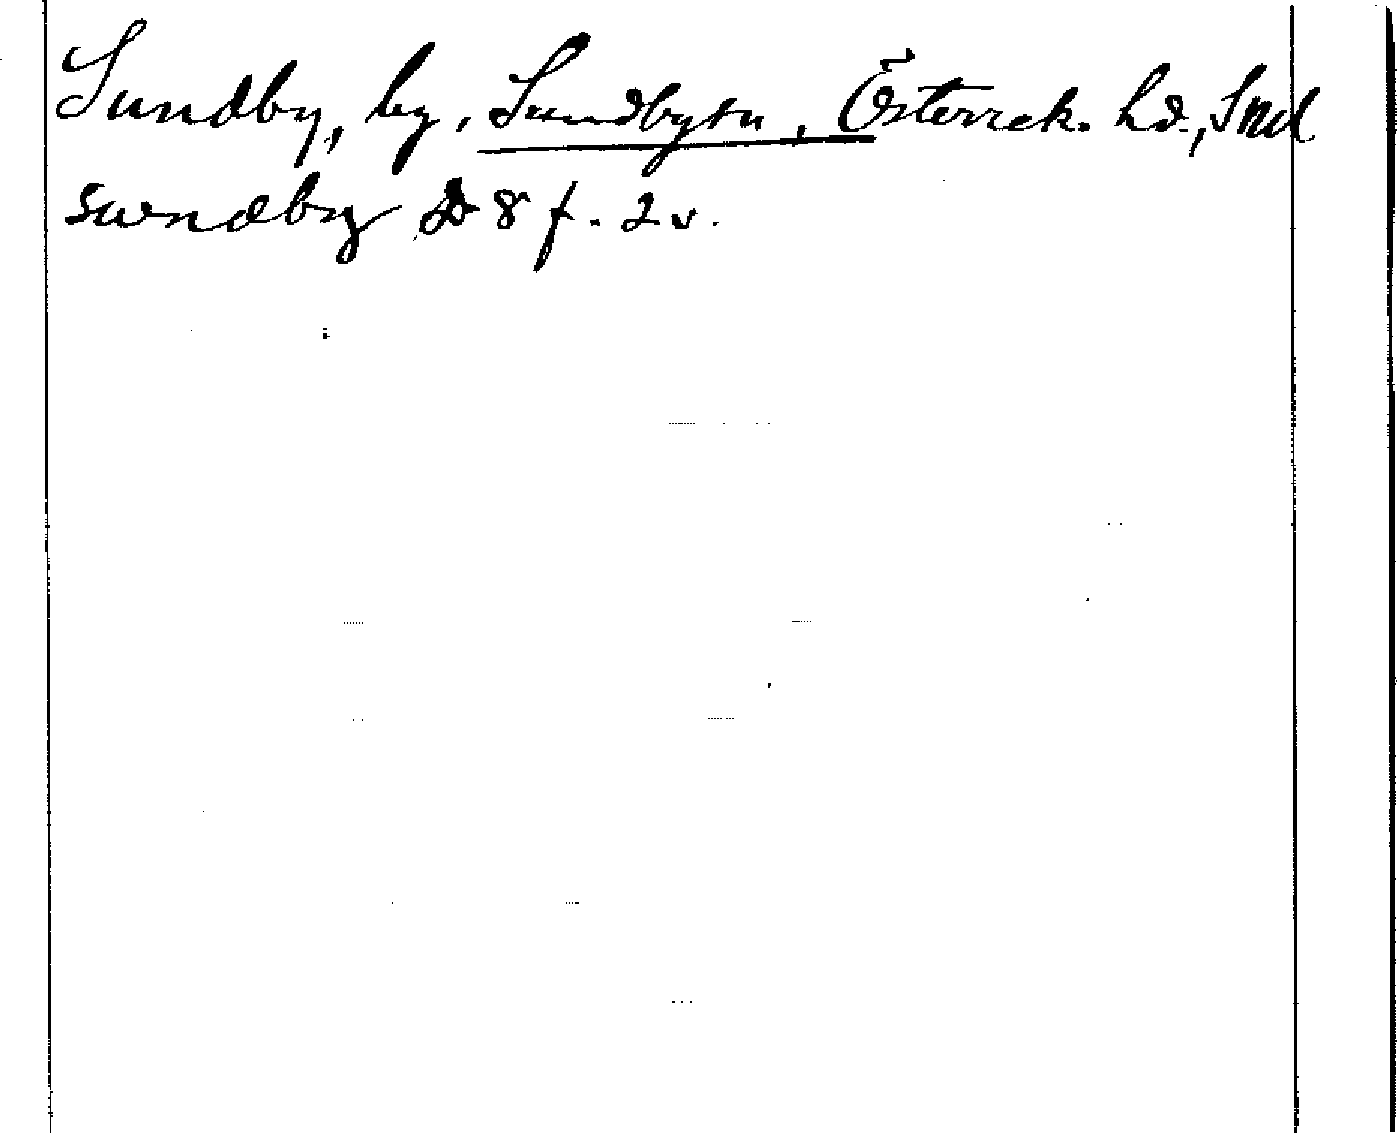 Sundby, by, Sundbysn, Österrek. hd., Sml
swndby D 8 f. 2 v.